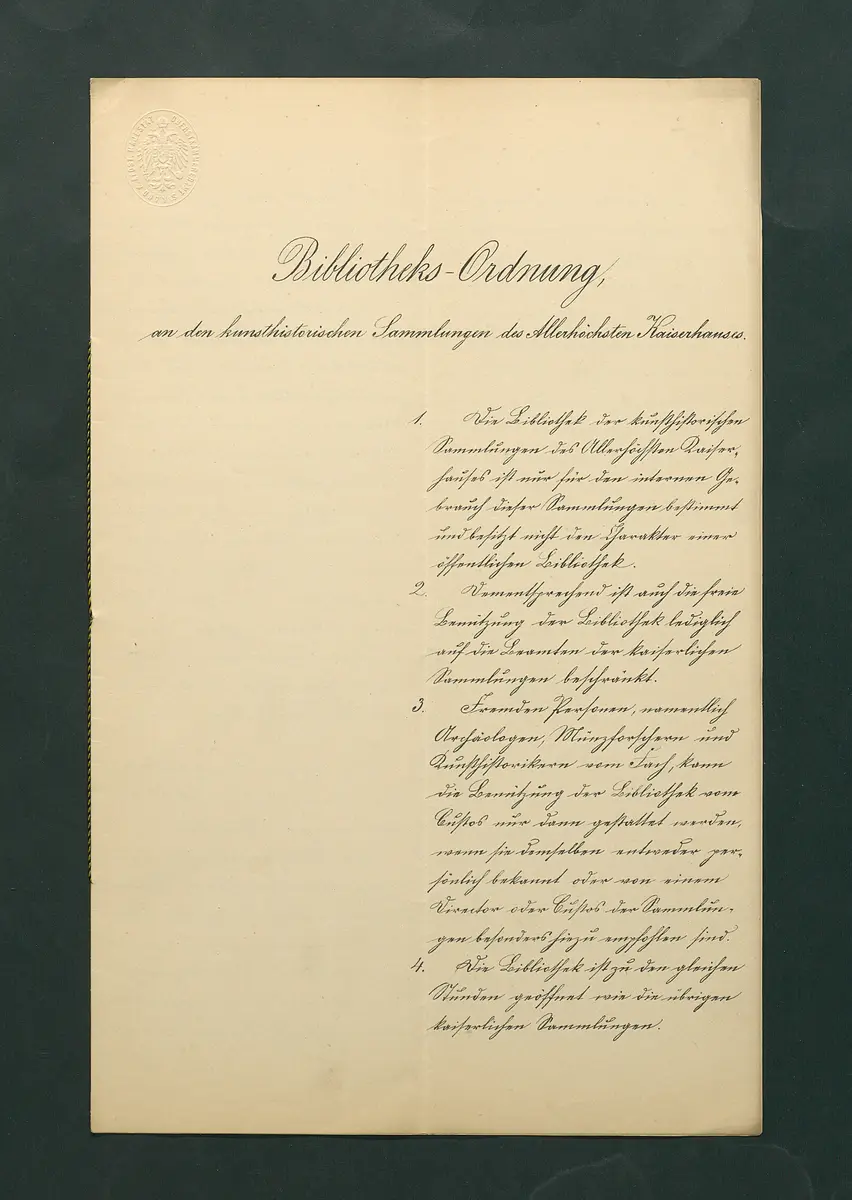 Bibliotheks-Ordnung,
an den kunsthistorischen Sammlungen des Allerhöchsten Kaiserhauses.
1. Die Bibliothek der kunsthistorischen
Sammlungen des Allerhöchsten Kaiser-
hauses ist nur für den internen Ge-
brauch dieser Sammlungen bestimmt
und besitzt nicht den Charakter einer
öffentlichen Bibliothek.
2. Dementsprechend ist auch die freie
Benützung der Bibliothek lediglich
auf die Beamten der kaiserlichen
Sammlungen beschränkt.
3. Fremden Personen, namentlich
Archäologen, Münzforschern und
Kunsthistorikern vom Fach, kann
die Benützung der Bibliothek vom
Custos nur dann gestattet werden,
wenn sie demselben entweder per-
sönlich bekannt oder von einem
Director oder Custos der Sammlun-
gen besonders hiezu empfohlen sind.
4. Die Bibliothek ist zu den gleichen
Stunden geöffnet wie die übrigen
kaiserlichen Sammlungen.